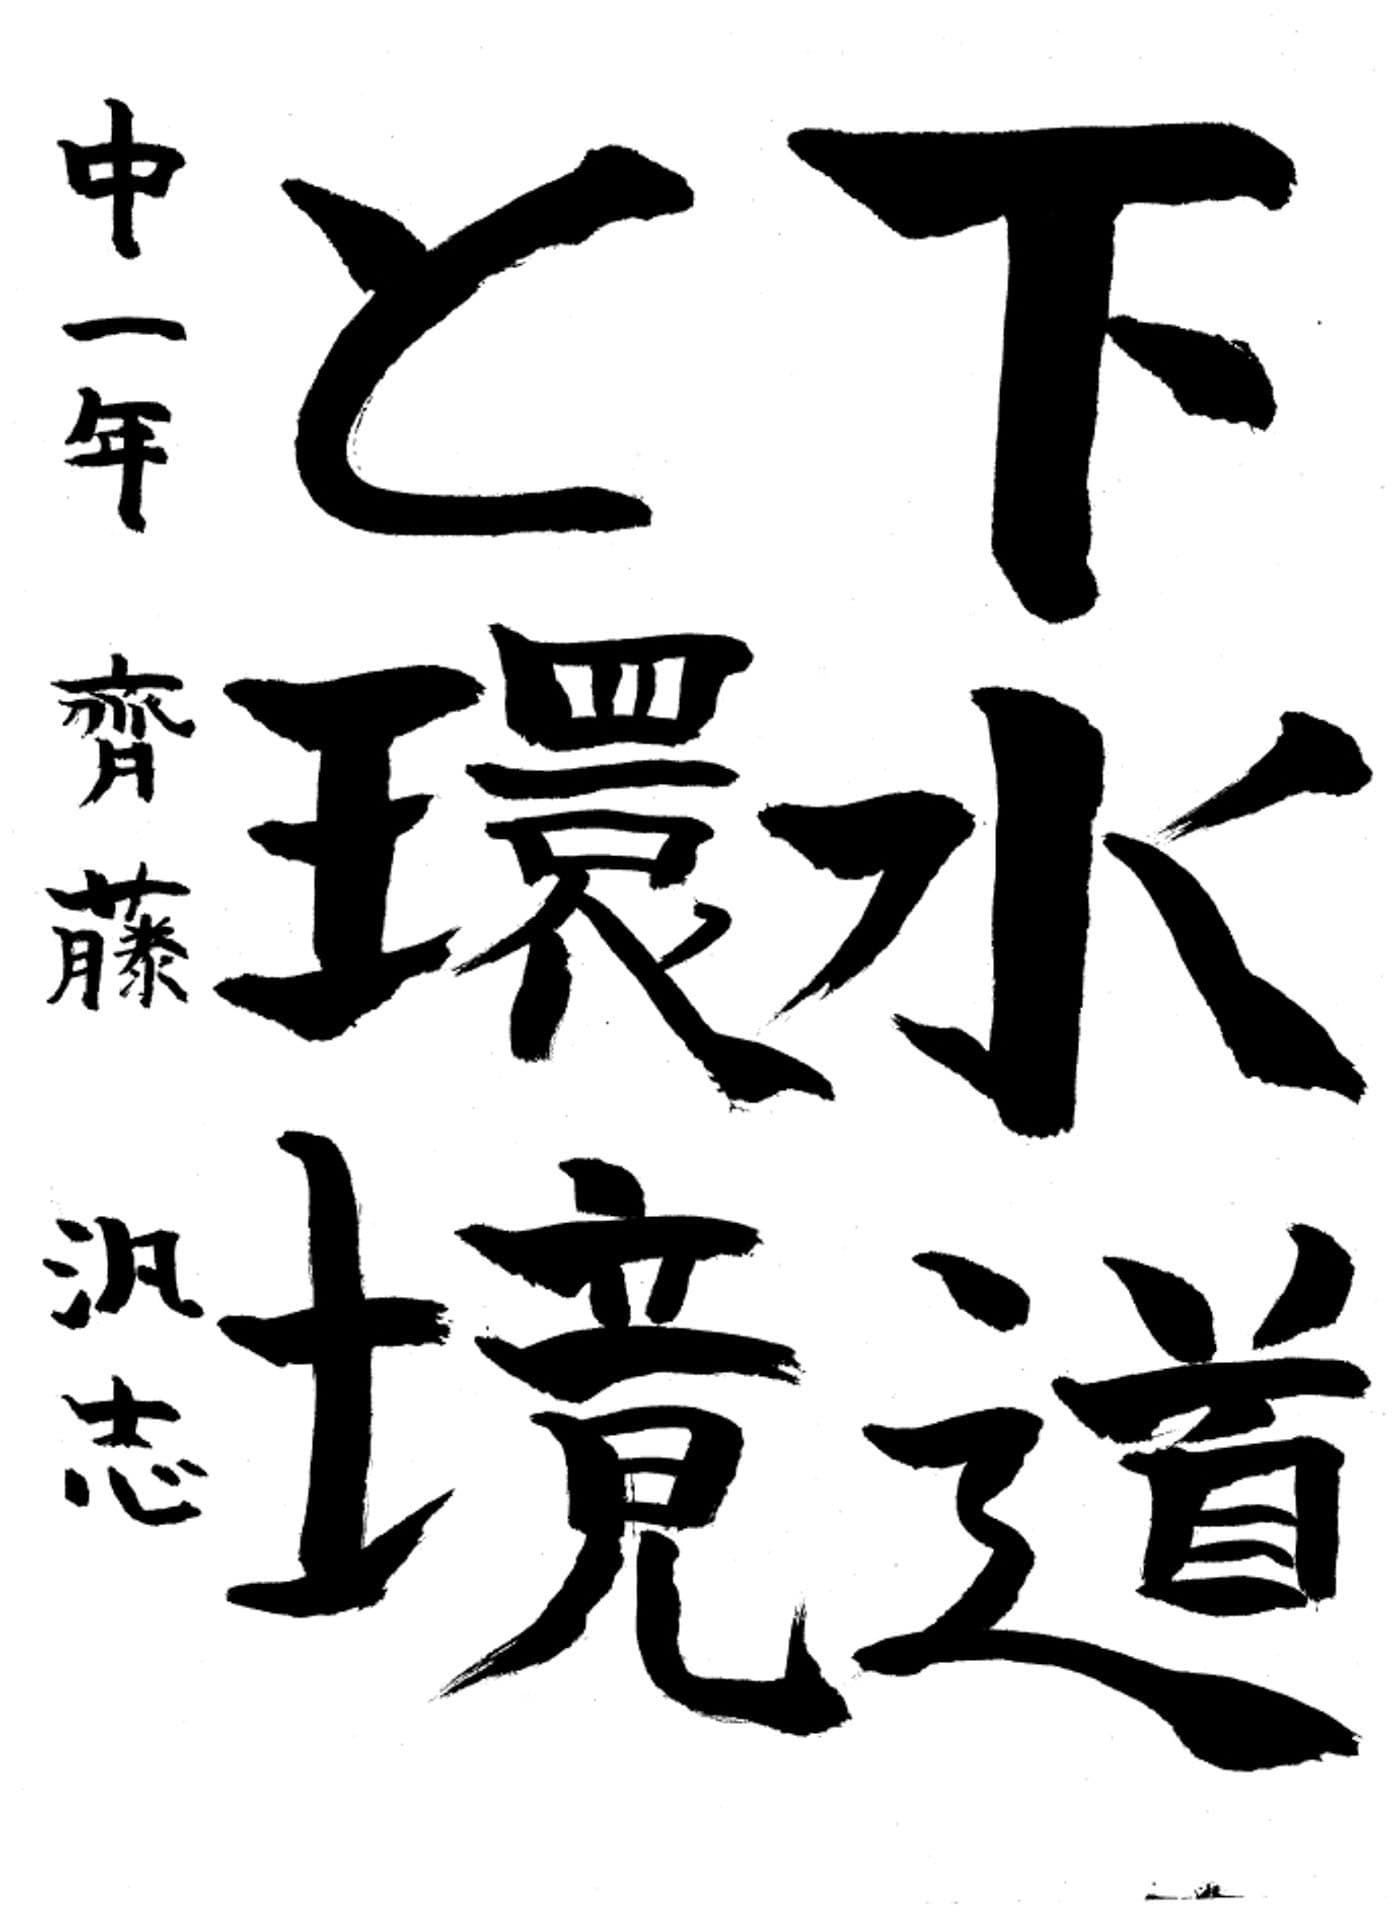 下水道
と環境
中一年 齊藤汎志